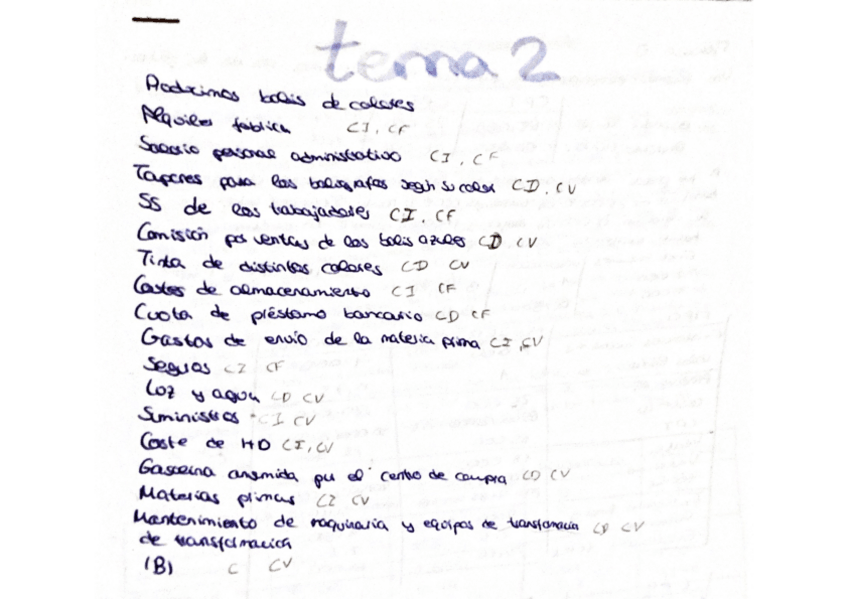 tema 2
Producimos bolis de colores
Alquiler fábrica CI, CF
Salario personal administrativo CI, CF
Tapones para los bolígrafos según su color CD, CV
SS de los trabajadores CI, CF
Comisión por ventas de los bolis azules CD CV
Tinta de distintos colores CD CV
Costes de almacenamiento CI CF
Cuota de préstamo bancario CD CF
Gastos de envío de la materia prima CI, CV
Seguros CI CF
Luz y agua CD CV
Suministros CI CV
Coste de MO CI, CV
Gasolina por el centro de compra CD CV
Materias primas CI CV
Mantenimiento de maquinaria y equipos de transformación CD CV
de transformación
(B) C CV